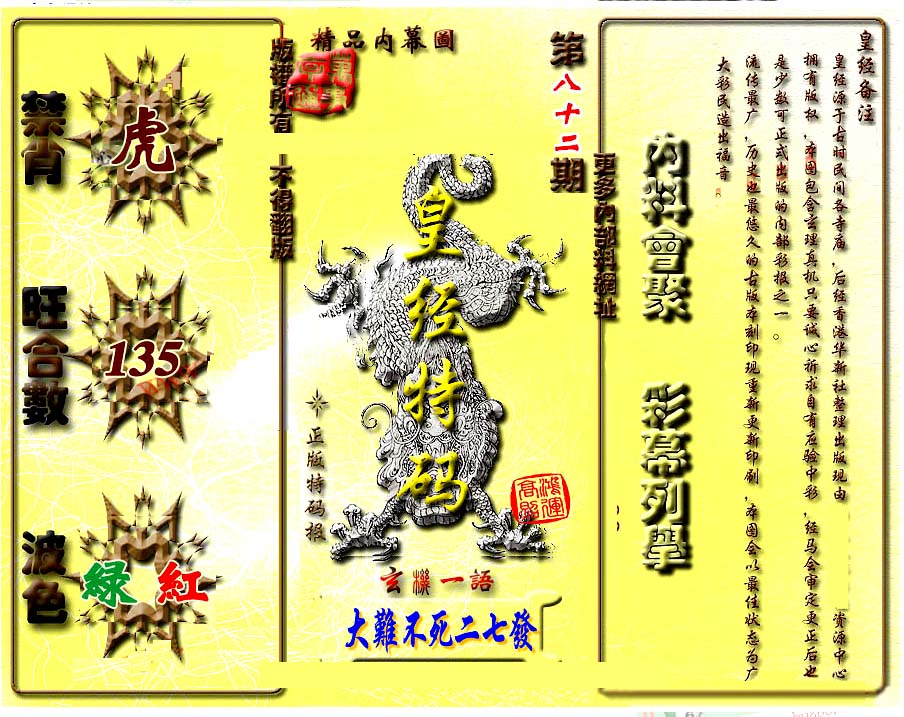 皇经备注
皇经源于古时民间各寺庙，后经香港华新社整理出版现由
资源中心
拥有版权，本图包含玄理真机只要诚心祈求自有应验中彩，经马会审定更正后也
是少数可正式出版的内部彩报之一。
流传最广，历史也最悠久的古版本刻印现重新更新印刷，本图会以最佳状态为广
大彩民造出福音
内料會聚
彩幕列舉
更多內部料網址
第八十二期
精品内幕圖
版權所有
不得翻版
皇经特码
正版特码报
鴻運
高照
玄機一語
大難不死二七發
禁肖
虎
旺合數
135
波色
綠
紅